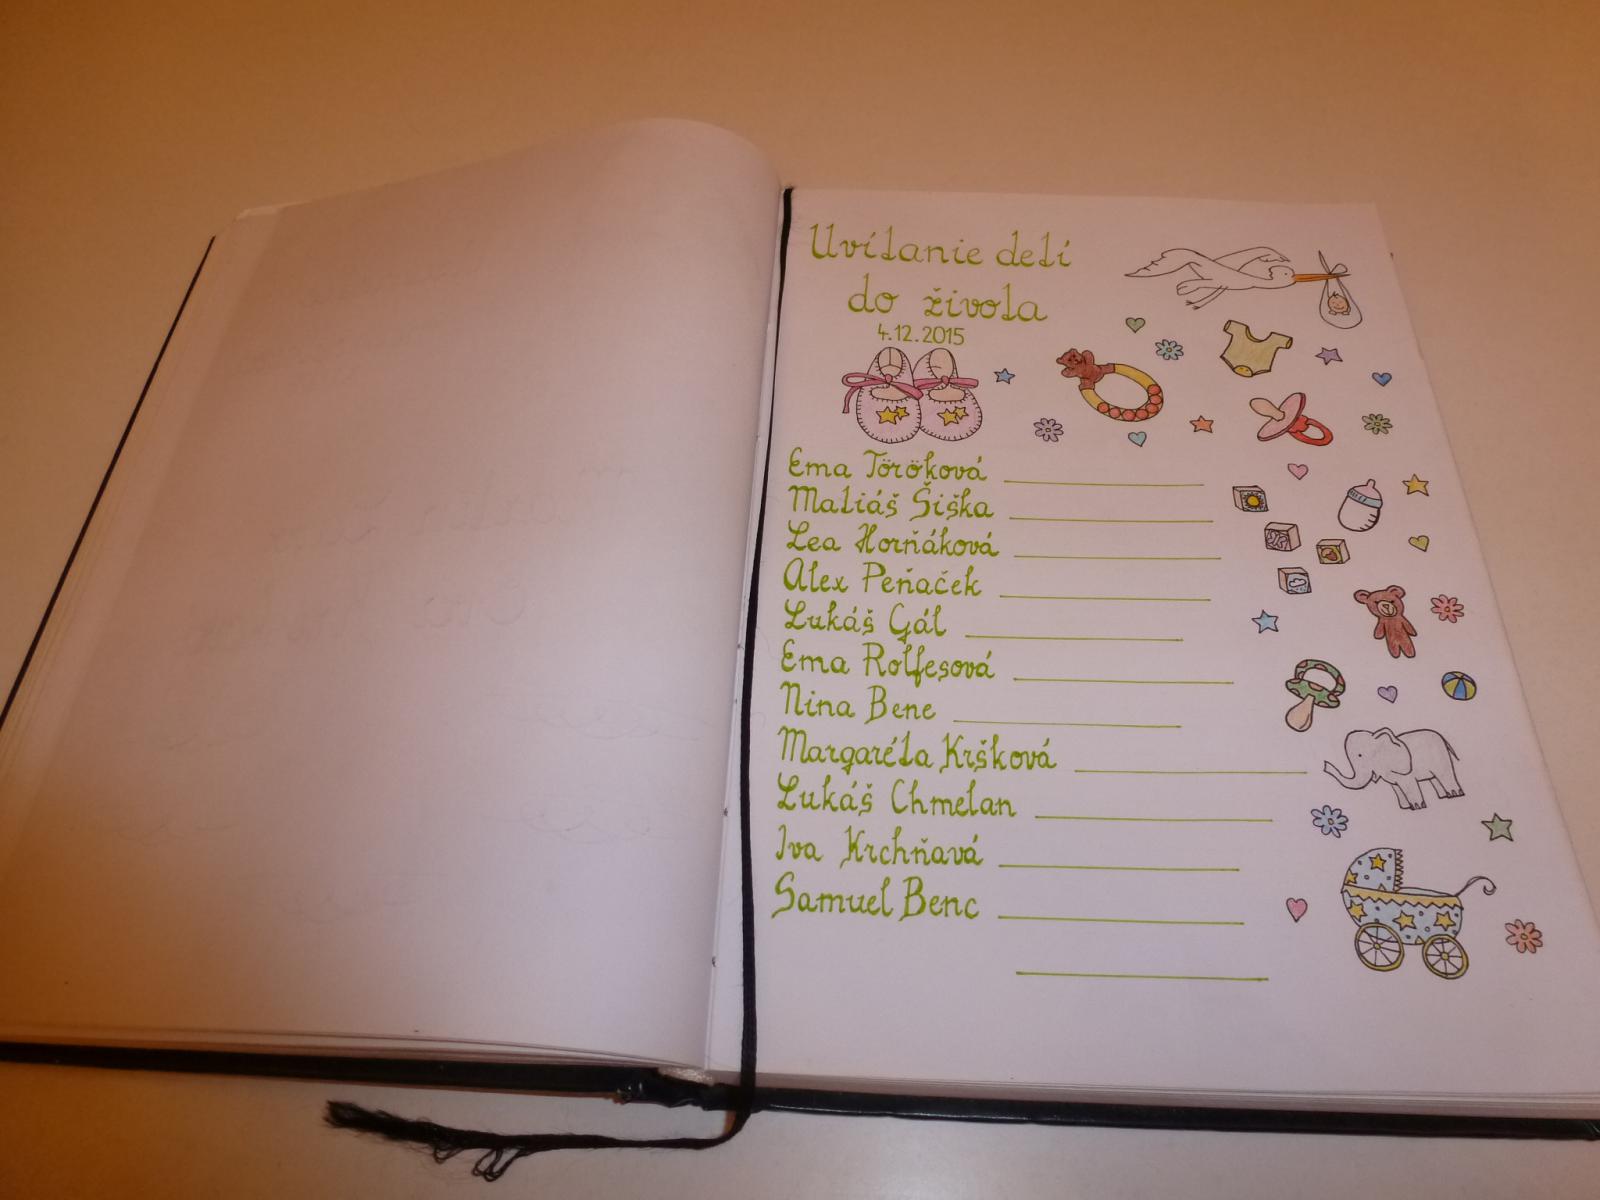 Uvítanie detí
do života
4.12.2015
Ema Töröková
Matiáš Šiška
Lea Horňáková
Alex Peňaček
Lukáš Gál
Ema Rolfesová
Nina Bene
Margaréta Kršková
Lukáš Chmelan
Iva Krchňavá
Samuel Benc